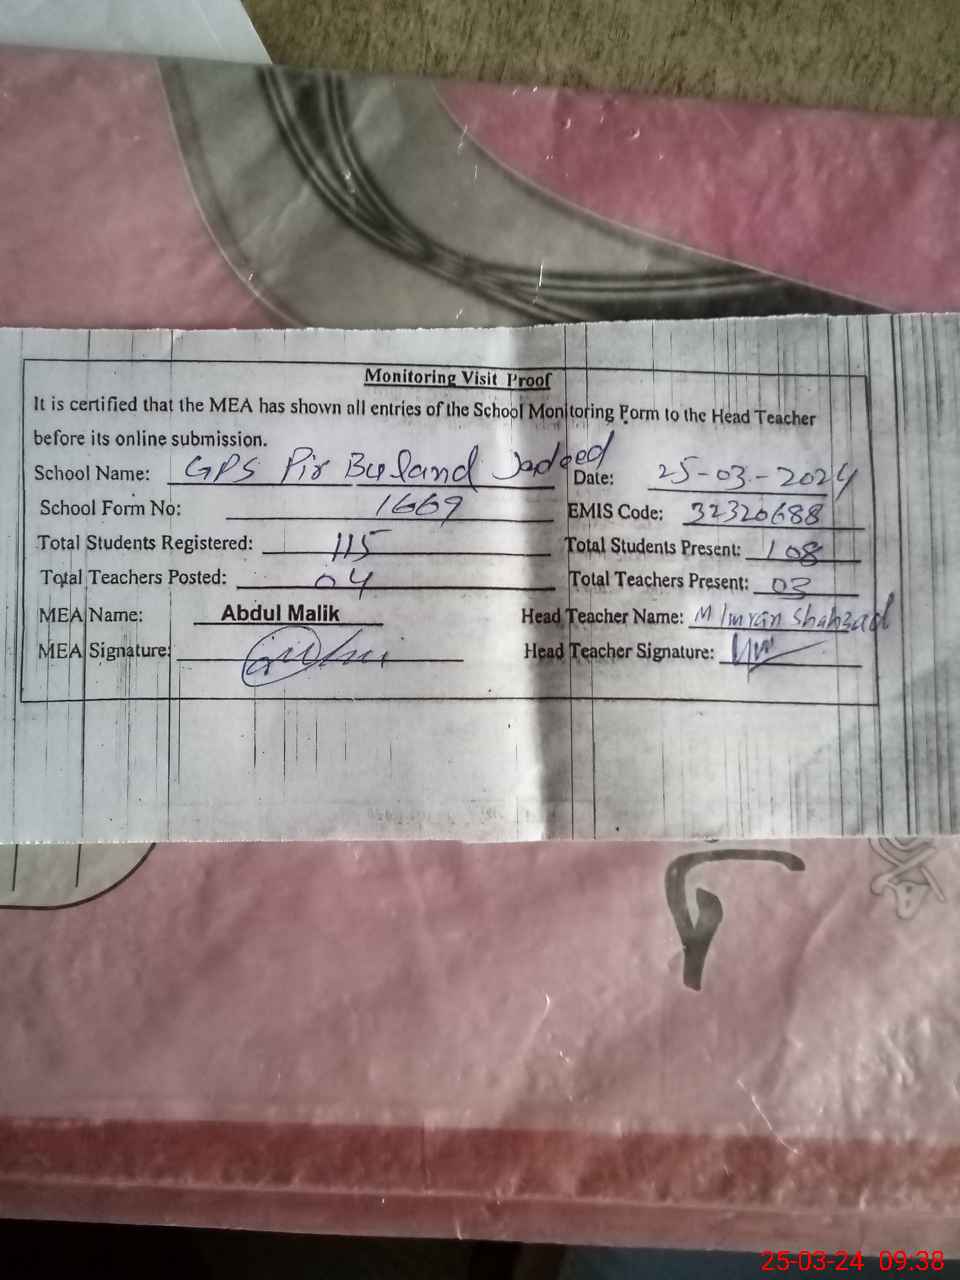 Monitoring Visit Proof
It is certified that the MEA has shown all entries of the School Monitoring Form to the Head Teacher
before its online submission.
School Name: GPS Pir Buland Jadeed Date: 25-03-2024
School Form No: 1669 EMIS Code: 32320688
Total Students Registered: 115 Total Students Present: 108
Total Teachers Posted: 04 Total Teachers Present: 03
MEA Name: Abdul Malik Head Teacher Name: M Imran Shahzad
MEA Signature: Head Teacher Signature:
25-03-24 09:38